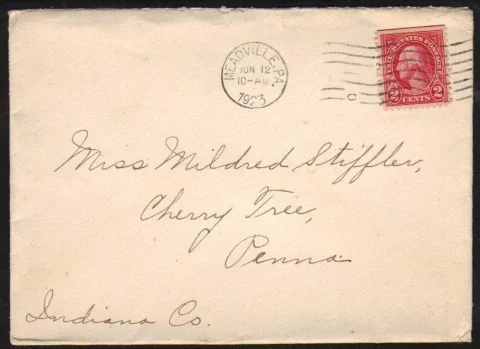 MEADVILLE, PA.
JUN 12
10-AM
1923
UNITED STATES POSTAGE
2 CENTS 2
Miss Mildred Stiffler,
Cherry Tree,
Penna
Indiana Co.